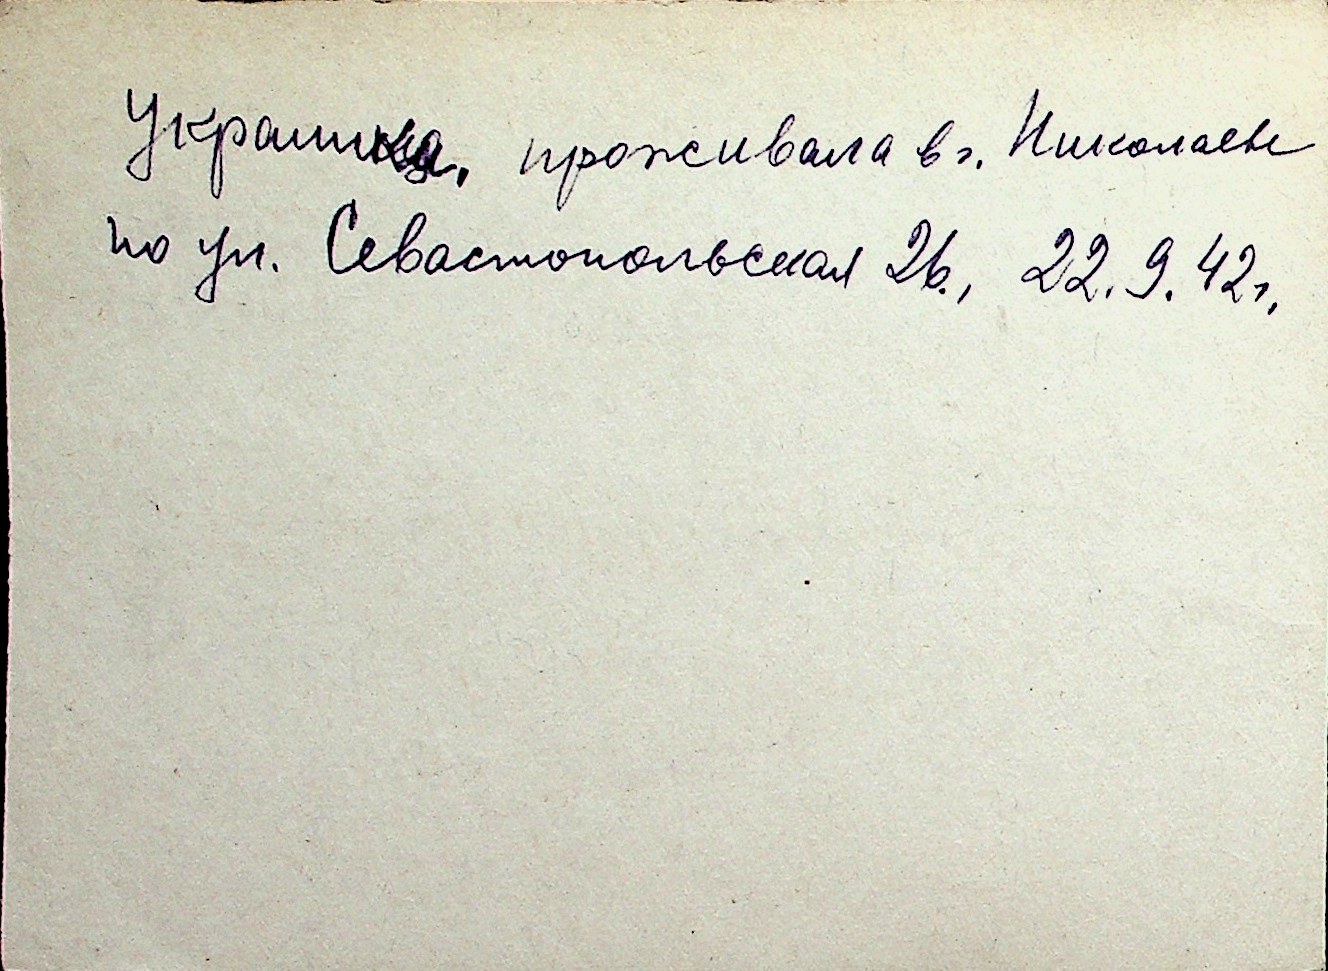 Украинка, проживала в г. Николаеве
по ул. Севастопольская 26., 22.9.42г.